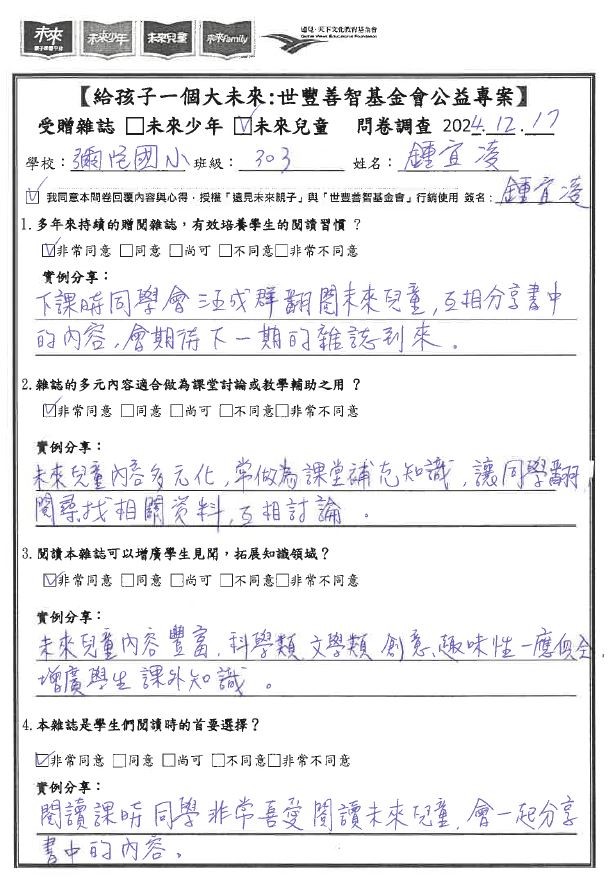 未來 未來少年 未來兒童 未來Family 遠見‧天下文化教育基金會
【給孩子一個大未來:世豐善智基金會公益專案】
受贈雜誌 □未來少年 ☑未來兒童 問卷調查 2024.12.17
學校:彌陀國小 班級:303 姓名:鍾宜凌
☑ 我同意本問卷回覆內容與心得,授權「遠見未來親子」與「世豐善智基金會」行銷使用 簽名:鍾宜凌
1.多年來持續的贈閱雜誌,有效培養學生的閱讀習慣?
☑非常同意 □同意 □尚可 □不同意□非常不同意
實例分享:
下課時同學會三五成群翻閱未來兒童,互相分享書中
的內容,會期待下一期的雜誌到來。
2.雜誌的多元內容適合做為課堂討論或教學輔助之用?
☑非常同意 □同意 □尚可 □不同意□非常不同意
實例分享:
未來兒童內容多元化,常做為課堂補充知識,讓同學翻
閱尋找相關資料,互相討論。
3.閱讀本雜誌可以增廣學生見聞,拓展知識領域?
☑非常同意 □同意 □尚可 □不同意□非常不同意
實例分享:
未來兒童內容豐富,科學類、文學類、創意、趣味性一應俱全,
增廣學生課外知識。
4.本雜誌是學生們閱讀時的首要選擇?
☑非常同意 □同意 □尚可 □不同意□非常不同意
實例分享:
閱讀課時同學非常喜愛閱讀未來兒童,會一起分享
書中的內容。